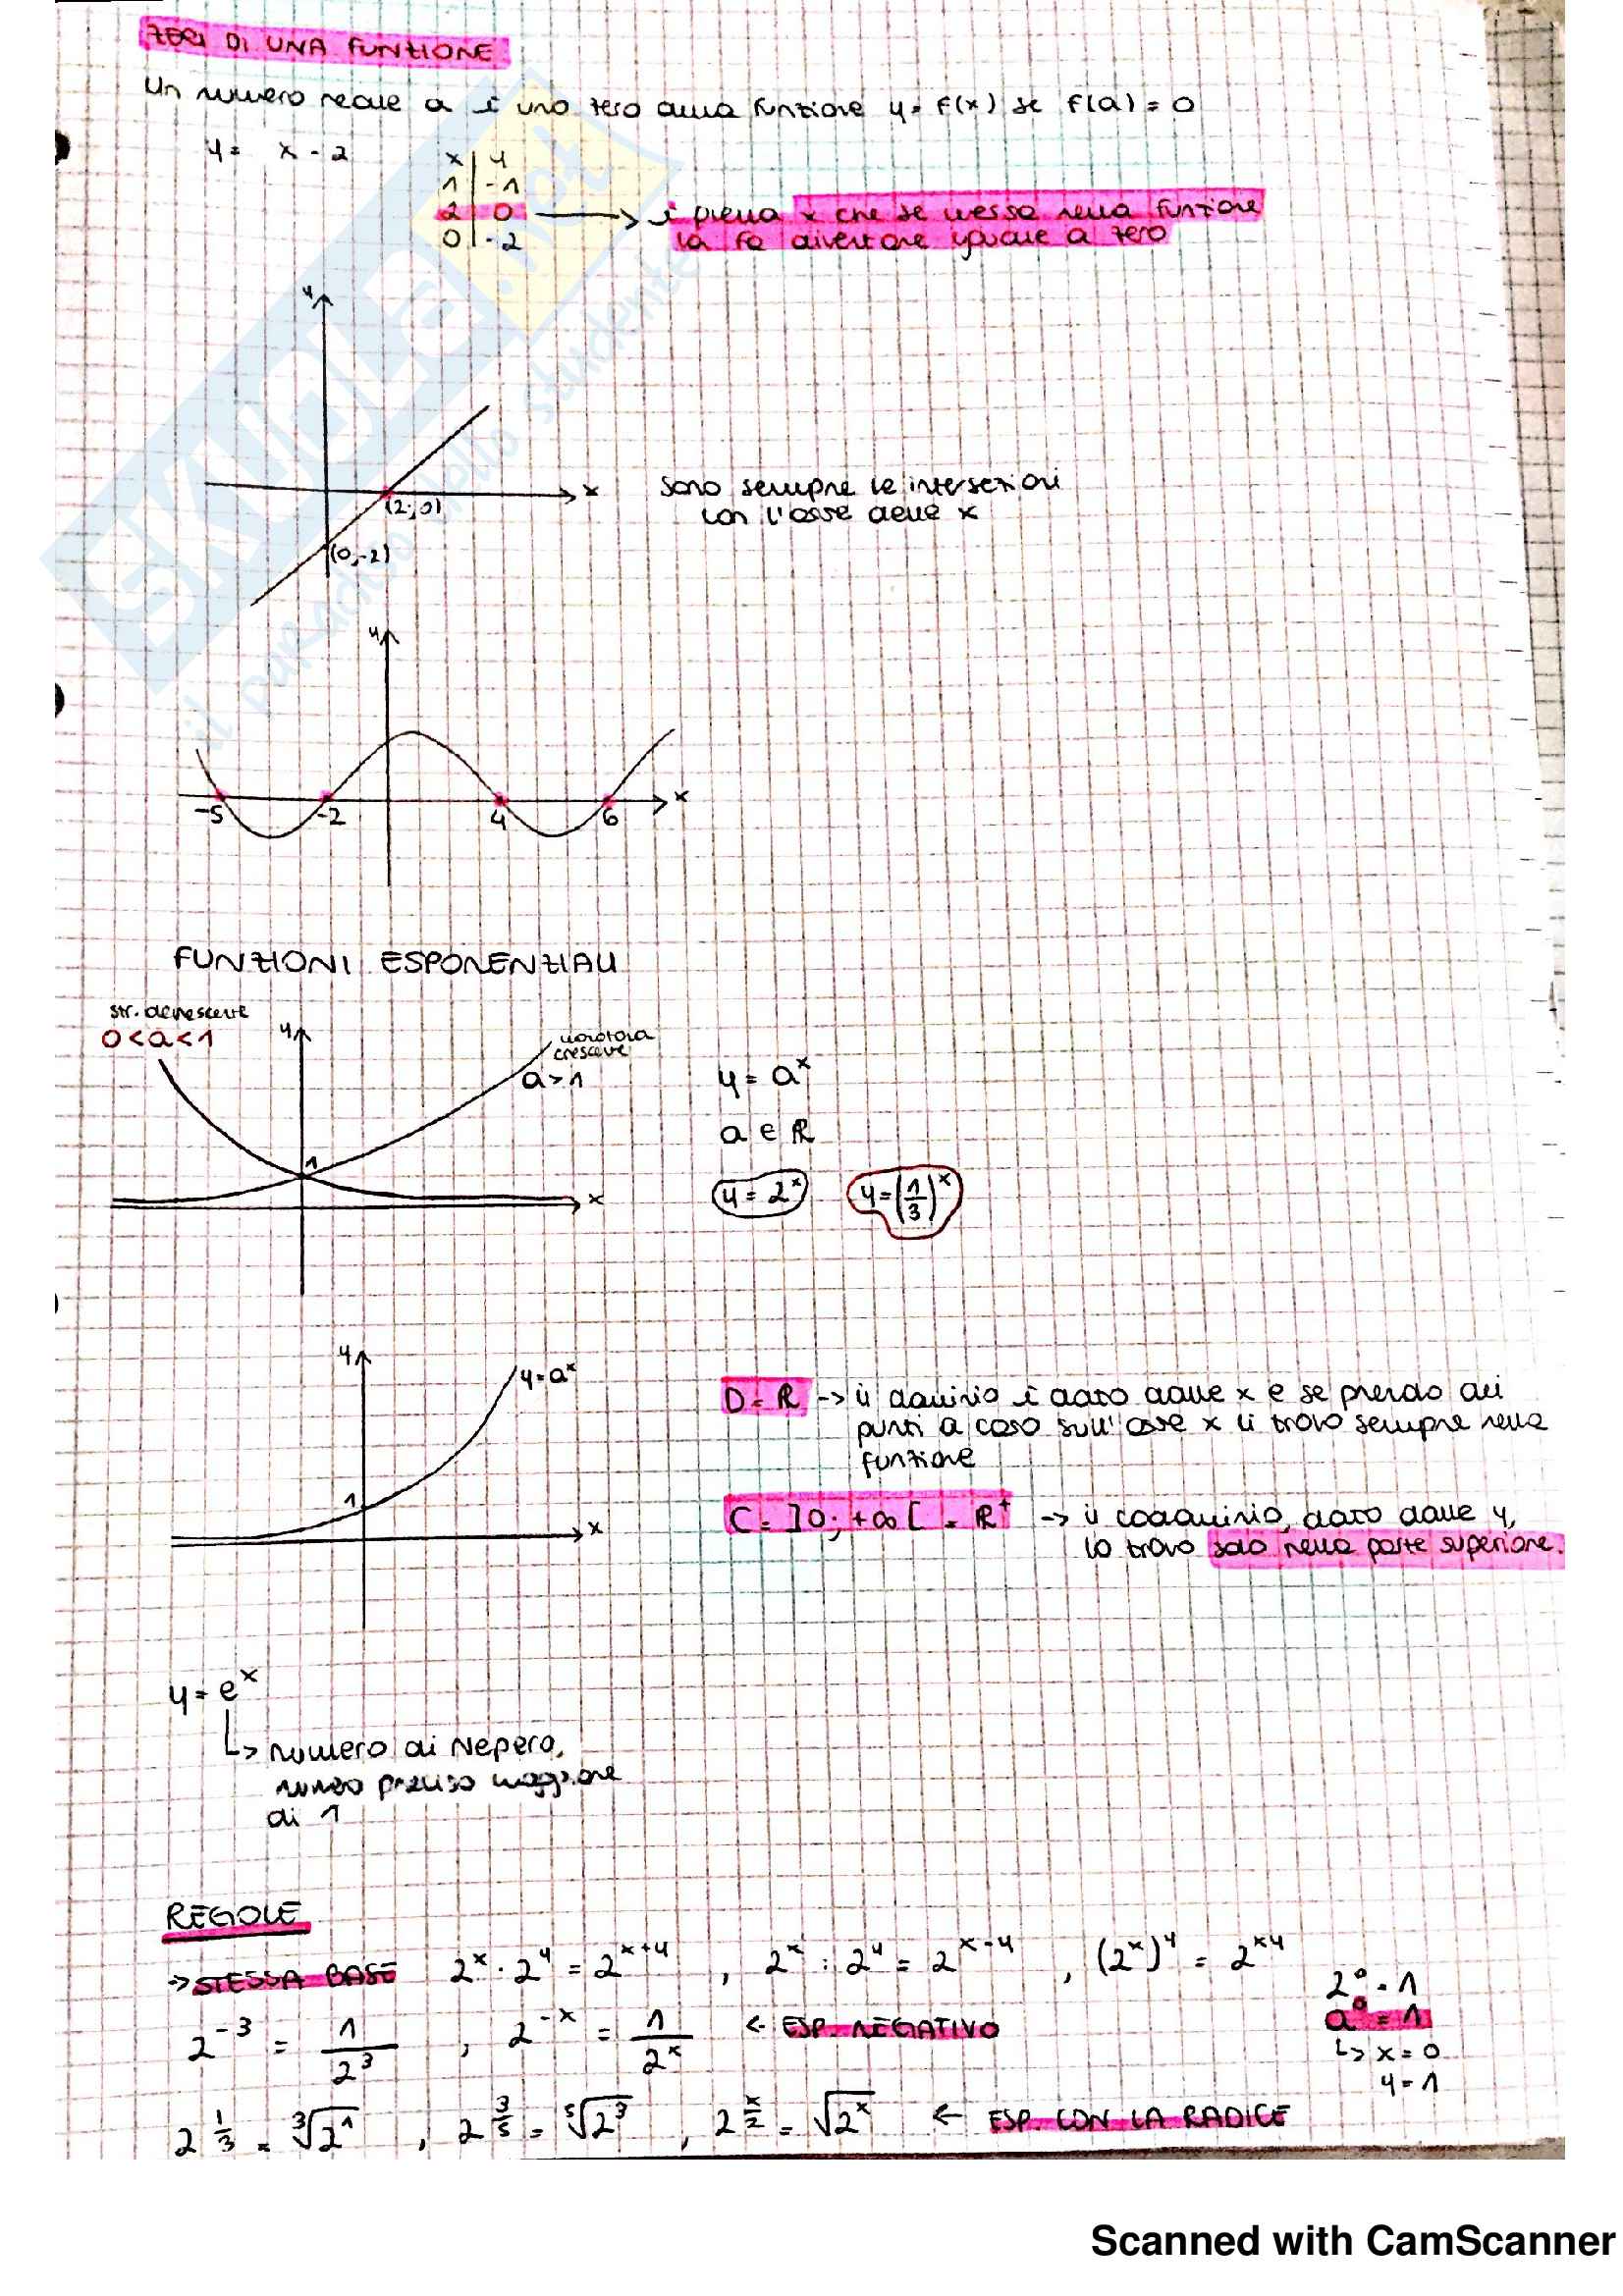 ZERI DI UNA FUNZIONE
Un numero reale a è uno zero della funzione y = f(x) se f(a) = 0
y = x - 2
x | y
1 | -1
2 | 0 → è quella x che se messa nella funzione
0 | -2 la fa diventare uguale a zero
y
x
(2;0)
(0,-2)
sono sempre le intersezioni
con l'asse delle x
y
x
-5 -2 4 6
FUNZIONI ESPONENZIALI
str. decrescente
0<a<1
y
monotona
crescente
a>1
1
x
y = aˣ
a e ℝ
y = 2ˣ y = (1/3)ˣ
y
y=aˣ
1
x
D = ℝ -> il dominio è dato dalle x e se prendo dei
punti a caso sull'asse x li trovo sempre nella
funzione
C = ]0; +∞[ = ℝ⁺ -> il codominio, dato dalle y,
lo trovo solo nella parte superiore.
y = eˣ
↳ numero di Nepero,
numero preciso maggiore
di 1
REGOLE
-> STESSA BASE 2^x · 2^y = 2^(x+y) , 2^x : 2^y = 2^(x-y) , (2^x)^y = 2^(xy)
2⁰ = 1
a⁰ = 1
↳ x = 0
y = 1
2^-3 = 1/2^3 , 2^-x = 1/2^x <- ESP. NEGATIVO
2^(1/3) = ∛2^1 , 2^(3/5) = ⁵√2^3 , 2^(x/2) = √2^x <- ESP. CON LA RADICE
SKUOLA.net
il paradiso dello studente
Scanned with CamScanner